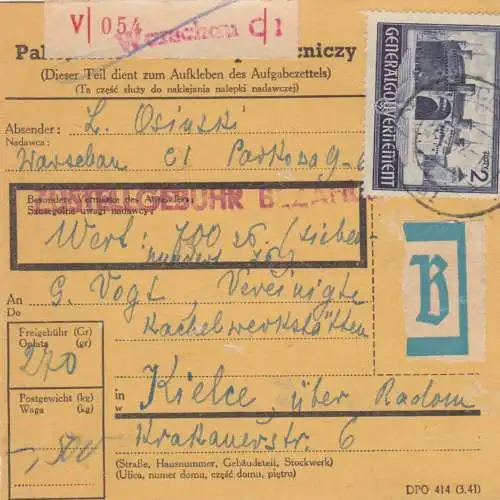 V 054 Warschau C 1
Pak
niczy
(Dieser Teil dient zum Aufkleben des Aufgabezettels)
(Ta część służy do naklejania nalepki nadawczej)
GENERALGOUVERNEMENT
2 ZŁOTY
Absender:
Nadawca:
L. Osinski
Warschau C1 Parkowa 9-6
Besondere Vermerke des Absenders:
Szczególne uwagi nadawcy:
ZUSTELLGEBÜHR BEZAHLT
Wert: 700 zł. (sieben
hundert zł.)
An
Do
G. Vogt, Vereinigte
Kachelwerkstätten
B
Freigebühr (Gr)
Opłata (gr)
270
Postgewicht (kg)
Waga (kg)
in
w
Kielce, über Radom
Krakauerstr. 6
(Straße, Hausnummer, Gebäudeteil, Stockwerk)
(Ulica, numer domu, część domu, piętro)
DPO 414 (3.41)